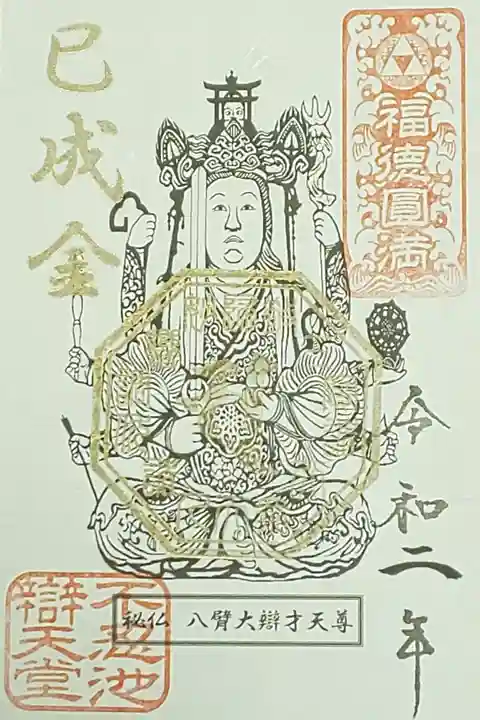 福徳圓満
令和二年
巳成金
秘仏 八臂大辯才天尊
不忍池
辯天堂